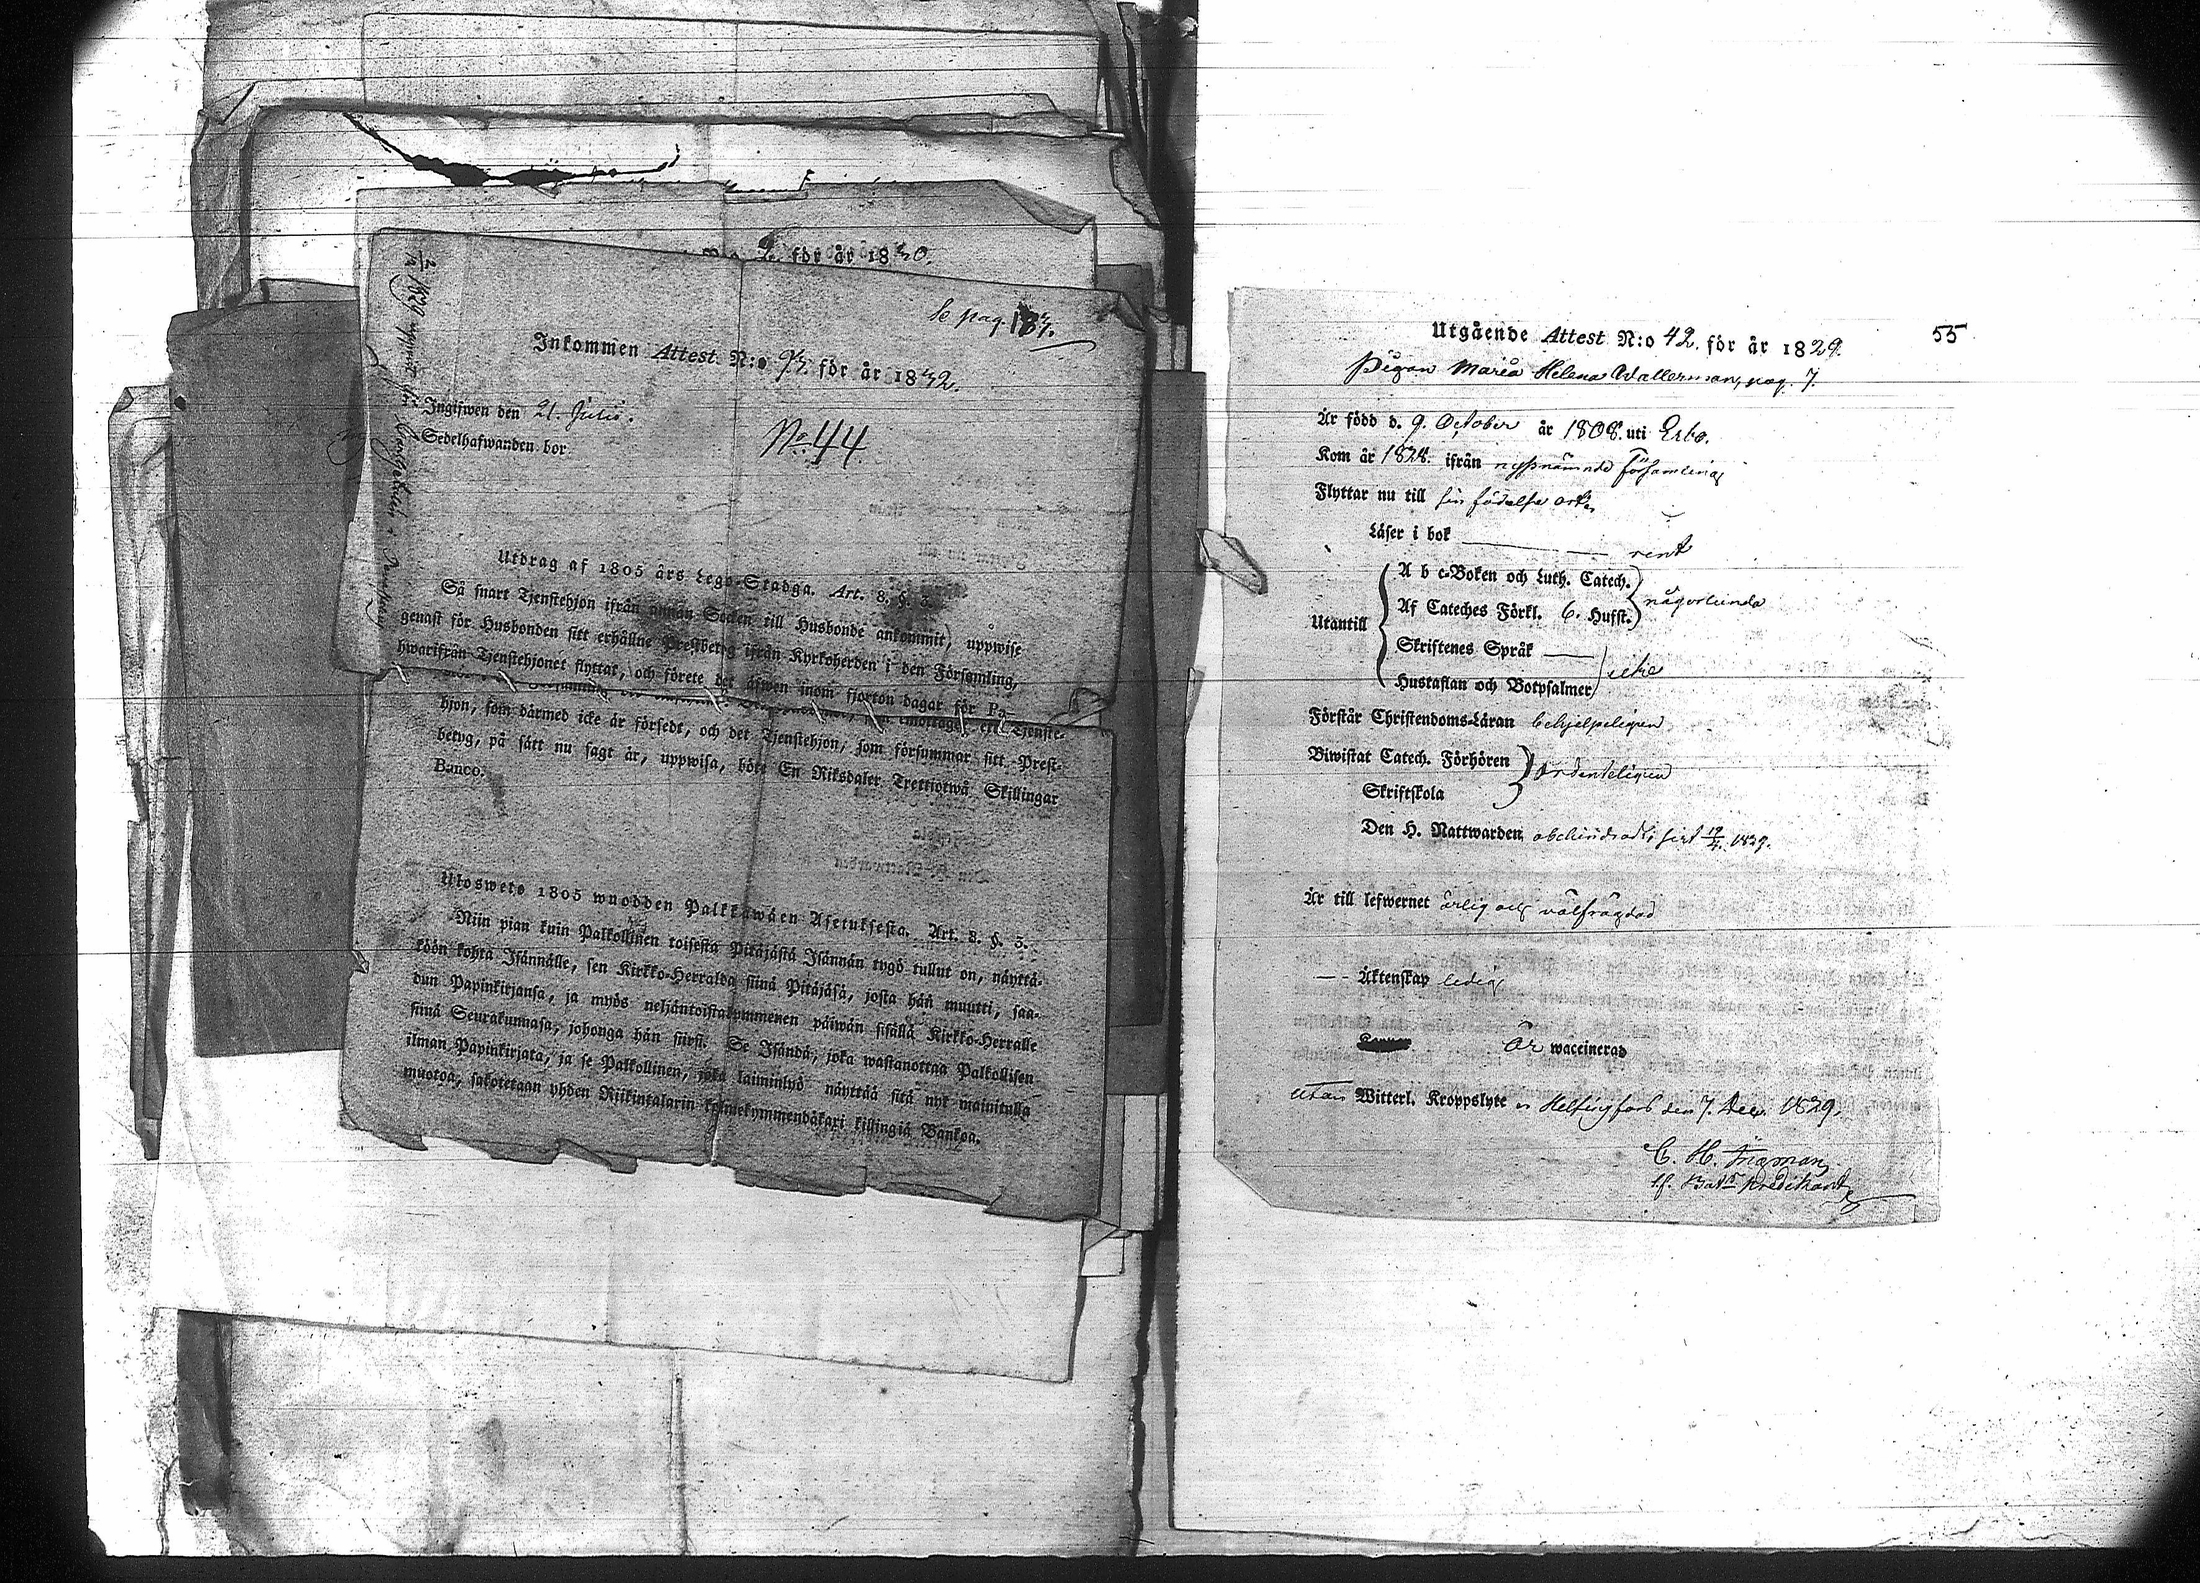 för år 1830.
Se pag. 187.
Inkommen Attest N:o 97. för år 1832.
Ingifwen den 21. Julii.
Sedelhafwanden bor
No. 44.
Utdrag af 1805 års Lego-Stadga. Art. 8. §. 3.
Så snart Tjenstehjon ifrån annan Socken till Husbonde ankommit, uppwise
genast för Husbonden sitt erhållne Prestbetyg ifrån Kyrkoherden i den Församling,
hwarifrån Tjenstehjonet flyttat, och förete det äfwen inom fjorton dagar för
emottager ett Tjenste-
hjon, som därmed icke är försedt, och det Tjenstehjon, som försummar sitt Prest-
betyg, på sätt nu sagt är, uppwisa, böte En Riksdaler Trettiotwå Skillingar
Banco.
Ulosweto 1805 wuodden Palkkawäen Asetuksesta. Art. 8. §. 3.
Niin pian kuin Palkollinen toisesta Pitäjästä Isännän tygö tullut on, näyttä-
köön kohta Isännälle, sen Kirkko-Herralda siinä Pitäjäsä, josta hän muutti, saa-
dun Papinkirjansa, ja myös neljäntoistakymmenen päiwän sisällä Kirkko-Herralle
siinä Seurakunnasa, johonga hän siirsi. Se Isändä, joka wastanottaa Palkollisen
ilman Papinkirjata, ja se Palkollinen, joka laiminlyö näyttää sitä nyt mainitulla
muotoa, sakotetaan yhden Riikintalarin kolmekymmendäkaxi killingiä Bankoa.
55
Utgående Attest N:o 42. för år 1829.
Pigan Maria Helena Wallerman, pag. 7.
Är född d. 9. October år 1808. uti Esbo.
Kom år 1828. ifrån nyssnämnde församling
Flyttar nu till sin födelse ort.
Läser i bok rent
A b c-Boken och Luth. Catech.
Af Cateches Förkl. 6. Hufst. någorlunda
Utantill
Skriftenes Språk
Hustaflan och Botpsalmer icke
Förstår Christendoms-Läran behjelpeligen
Biwistat Catech. Förhören ordenteligen
Skriftskola
Den H. Nattwarden 1829.
Är till lefwernet ärlig och välfrägdad
Äktenskap ledig
Är waccinerad
utan Witterl. Kroppslyte Helsingfors den 7. Dec. 1829.
C. H. Ingman